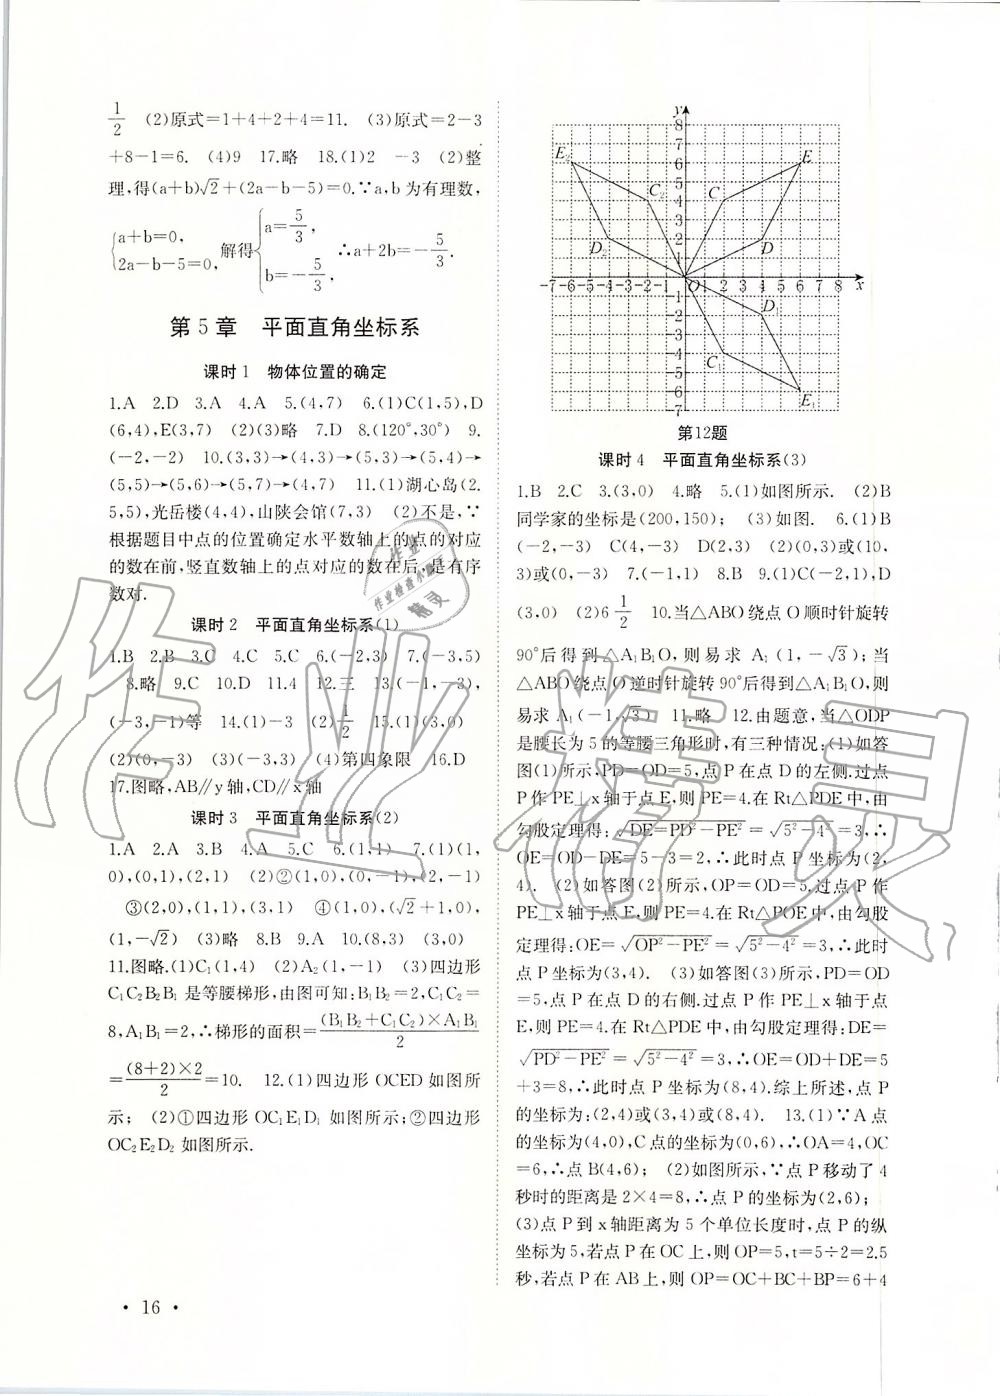 1/2 (2)原式=1+4+2+4=11. (3)原式=2-3
+8-1=6. (4)9 17.略 18.(1)2 -3 (2)整
理,得(a+b)√2+(2a-b-5)=0.∵a,b为有理数,
{a+b=0, 2a-b-5=0, 解得{a=5/3, b=-5/3, ∴a+2b=-5/3.
第5章 平面直角坐标系
课时1 物体位置的确定
1.A 2.D 3.A 4.A 5.(4,7) 6.(1)C(1,5),D
(6,4),E(3,7) (2)(3)略 7.D 8.(120°,30°) 9.
(-2,-2) 10.(3,3)→(4,3)→(5,3)→(5,4)→
(5,5)→(5,6)→(5,7)→(4,7) 11.(1)湖心岛(2.
5,5),光岳楼(4,4),山陕会馆(7,3) (2)不是,∵
根据题目中点的位置确定水平数轴上的点的对应
的数在前,竖直数轴上的点对应的数在后,是有序
数对.
课时2 平面直角坐标系(1)
1.B 2.B 3.C 4.C 5.C 6.(-2,3) 7.(-3,5)
8.略 9.C 10.D 11.4 12.三 13.(-1,-3),
(-3,-1)等 14.(1)-3 (2)1/2 15.(1)(3,0)
(2)(0,-3) (3)(-3,3) (4)第四象限 16.D
17.图略,AB∥y轴,CD∥x轴
课时3 平面直角坐标系(2)
1.A 2.A 3.B 4.A 5.C 6.(1,1) 7.(1)(1,
0),(0,1),(2,1) (2)②(1,0),(0,-1),(2,-1)
③(2,0),(1,1),(3,1) ④(1,0),(√2+1,0),
(1,-√2) (3)略 8.B 9.A 10.(8,3) (3,0)
11.图略.(1)C₁(1,4) (2)A₂(1,-1) (3)四边形
C₁C₂B₂B₁是等腰梯形,由图可知:B₁B₂=2,C₁C₂=
8,A₁B₁=2,∴梯形的面积=(B₁B₂+C₁C₂)×A₁B₁/2
=(8+2)×2/2=10. 12.(1)四边形OCED如图所
示; (2)①四边形OC₁E₁D₁如图所示;②四边形
OC₂E₂D₂如图所示.
• 16 •
y
8
7
E₂ 6 E
5
C₂ 4 C
3
D₂ 2 D
1
-7-6-5-4-3-2-1 O 1 2 3 4 5 6 7 8 x
-1
-2 D₁
-3
-4 C₁
-5
-6 E₁
-7
第12题
课时4 平面直角坐标系(3)
1.B 2.C 3.(3,0) 4.略 5.(1)如图所示. (2)B
同学家的坐标是(200,150); (3)如图. 6.(1)B
(-2,-3) C(4,-3) D(2,3) (2)(0,3)或(10,
3)或(0,-3) 7.(-1,1) 8.B 9.(1)C(-2,1),D
(3,0) (2)6 1/2 10.当△ABO绕点O顺时针旋转
90°后得到△A₁B₁O,则易求A₁(1,-√3);当
△ABO绕点O逆时针旋转90°后得到△A₁B₁O,则
易求A₁(-1,√3) 11.略 12.由题意,当△ODP
是腰长为5的等腰三角形时,有三种情况:(1)如答
图(1)所示,PD=OD=5,点P在点D的左侧.过点
P作PE⊥x轴于点E,则PE=4.在Rt△PDE中,由
勾股定理得:√DE=PD²-PE²=√5²-4²=3,∴
OE=OD-DE=5-3=2,∴此时点P坐标为(2,
4). (2)如答图(2)所示,OP=OD=5,过点P作
PE⊥x轴于点E,则PE=4.在Rt△POE中,由勾股
定理得:OE=√OP²-PE²=√5²-4²=3,∴此时
点P坐标为(3,4). (3)如答图(3)所示,PD=OD
=5,点P在点D的右侧.过点P作PE⊥x轴于点
E,则PE=4.在Rt△PDE中,由勾股定理得:DE=
√PD²-PE²=√5²-4²=3,∴OE=OD+DE=5
+3=8,∴此时点P坐标为(8,4).综上所述,点P
的坐标为:(2,4)或(3,4)或(8,4). 13.(1)∵A点
的坐标为(4,0),C点的坐标为(0,6),∴OA=4,OC
=6,∴点B(4,6); (2)如图所示,∵点P移动了4
秒时的距离是2×4=8,∴点P的坐标为(2,6);
(3)点P到x轴距离为5个单位长度时,点P的纵
坐标为5,若点P在OC上,则OP=5,t=5÷2=2.5
秒,若点P在AB上,则OP=OC+BC+BP=6+4
作业精灵
作业
作业检查小
精灵